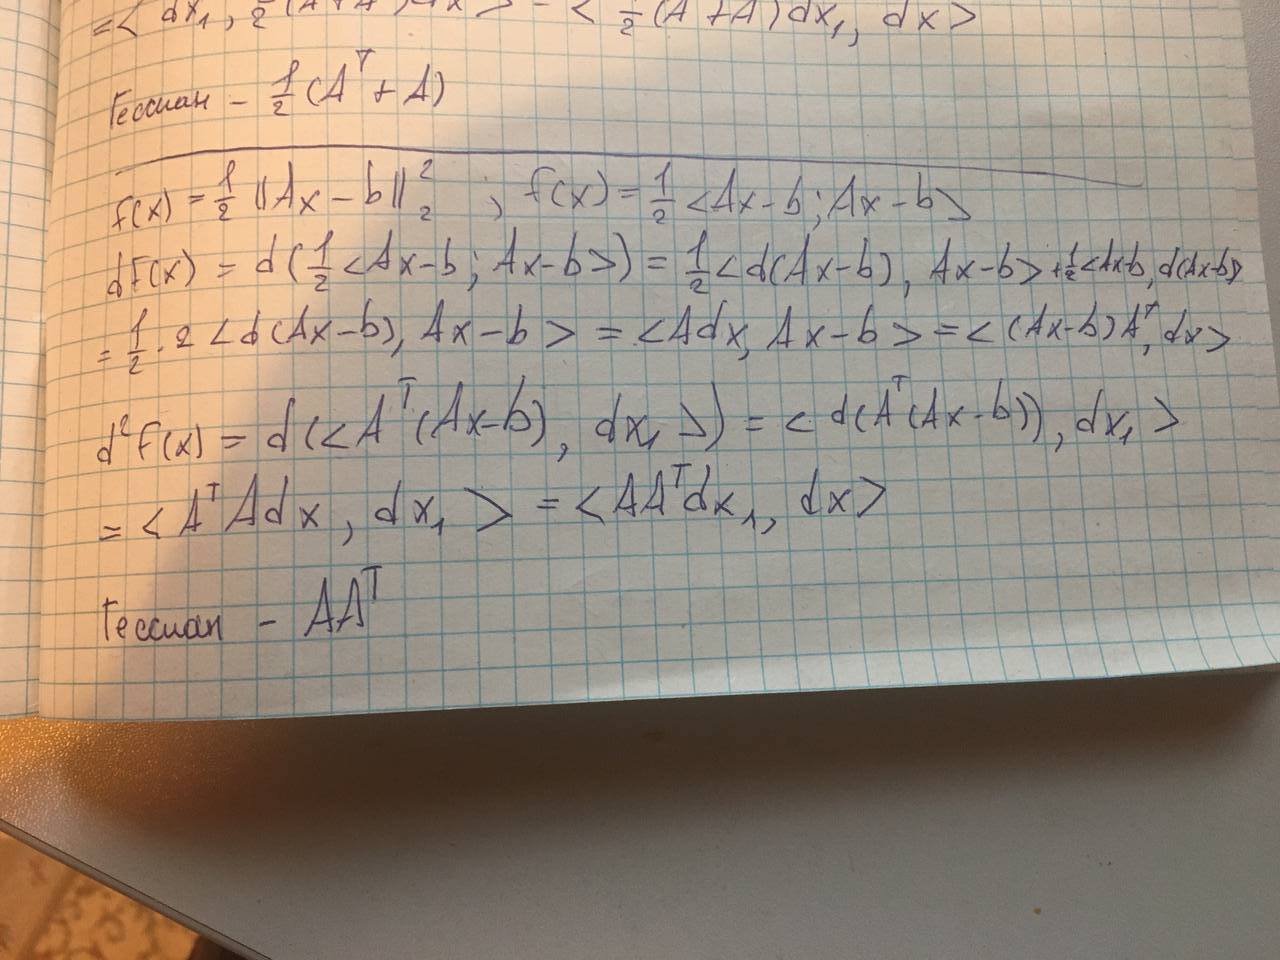 =< dx₁, ½(A+A)dx > = < ½(A^T+A)dx₁, dx>
Гессиан - ½(A^T + A)
f(x) = ½ ||Ax - b||₂² , f(x) = ½ <Ax-b; Ax-b>
df(x) = d(½ <Ax-b; Ax-b>) = ½ <d(Ax-b), Ax-b> + ½ <Ax-b, d(Ax-b)>
= ½ · 2 <d(Ax-b), Ax-b> = <Adx, Ax-b> = <(Ax-b)A^T, dx>
d²f(x) = d(<A^T(Ax-b), dx₁>) = < d(A^T(Ax-b)), dx₁ >
= <A^T Adx, dx₁ > = <AA^T dx₁, dx>
Гессиан - AA^T